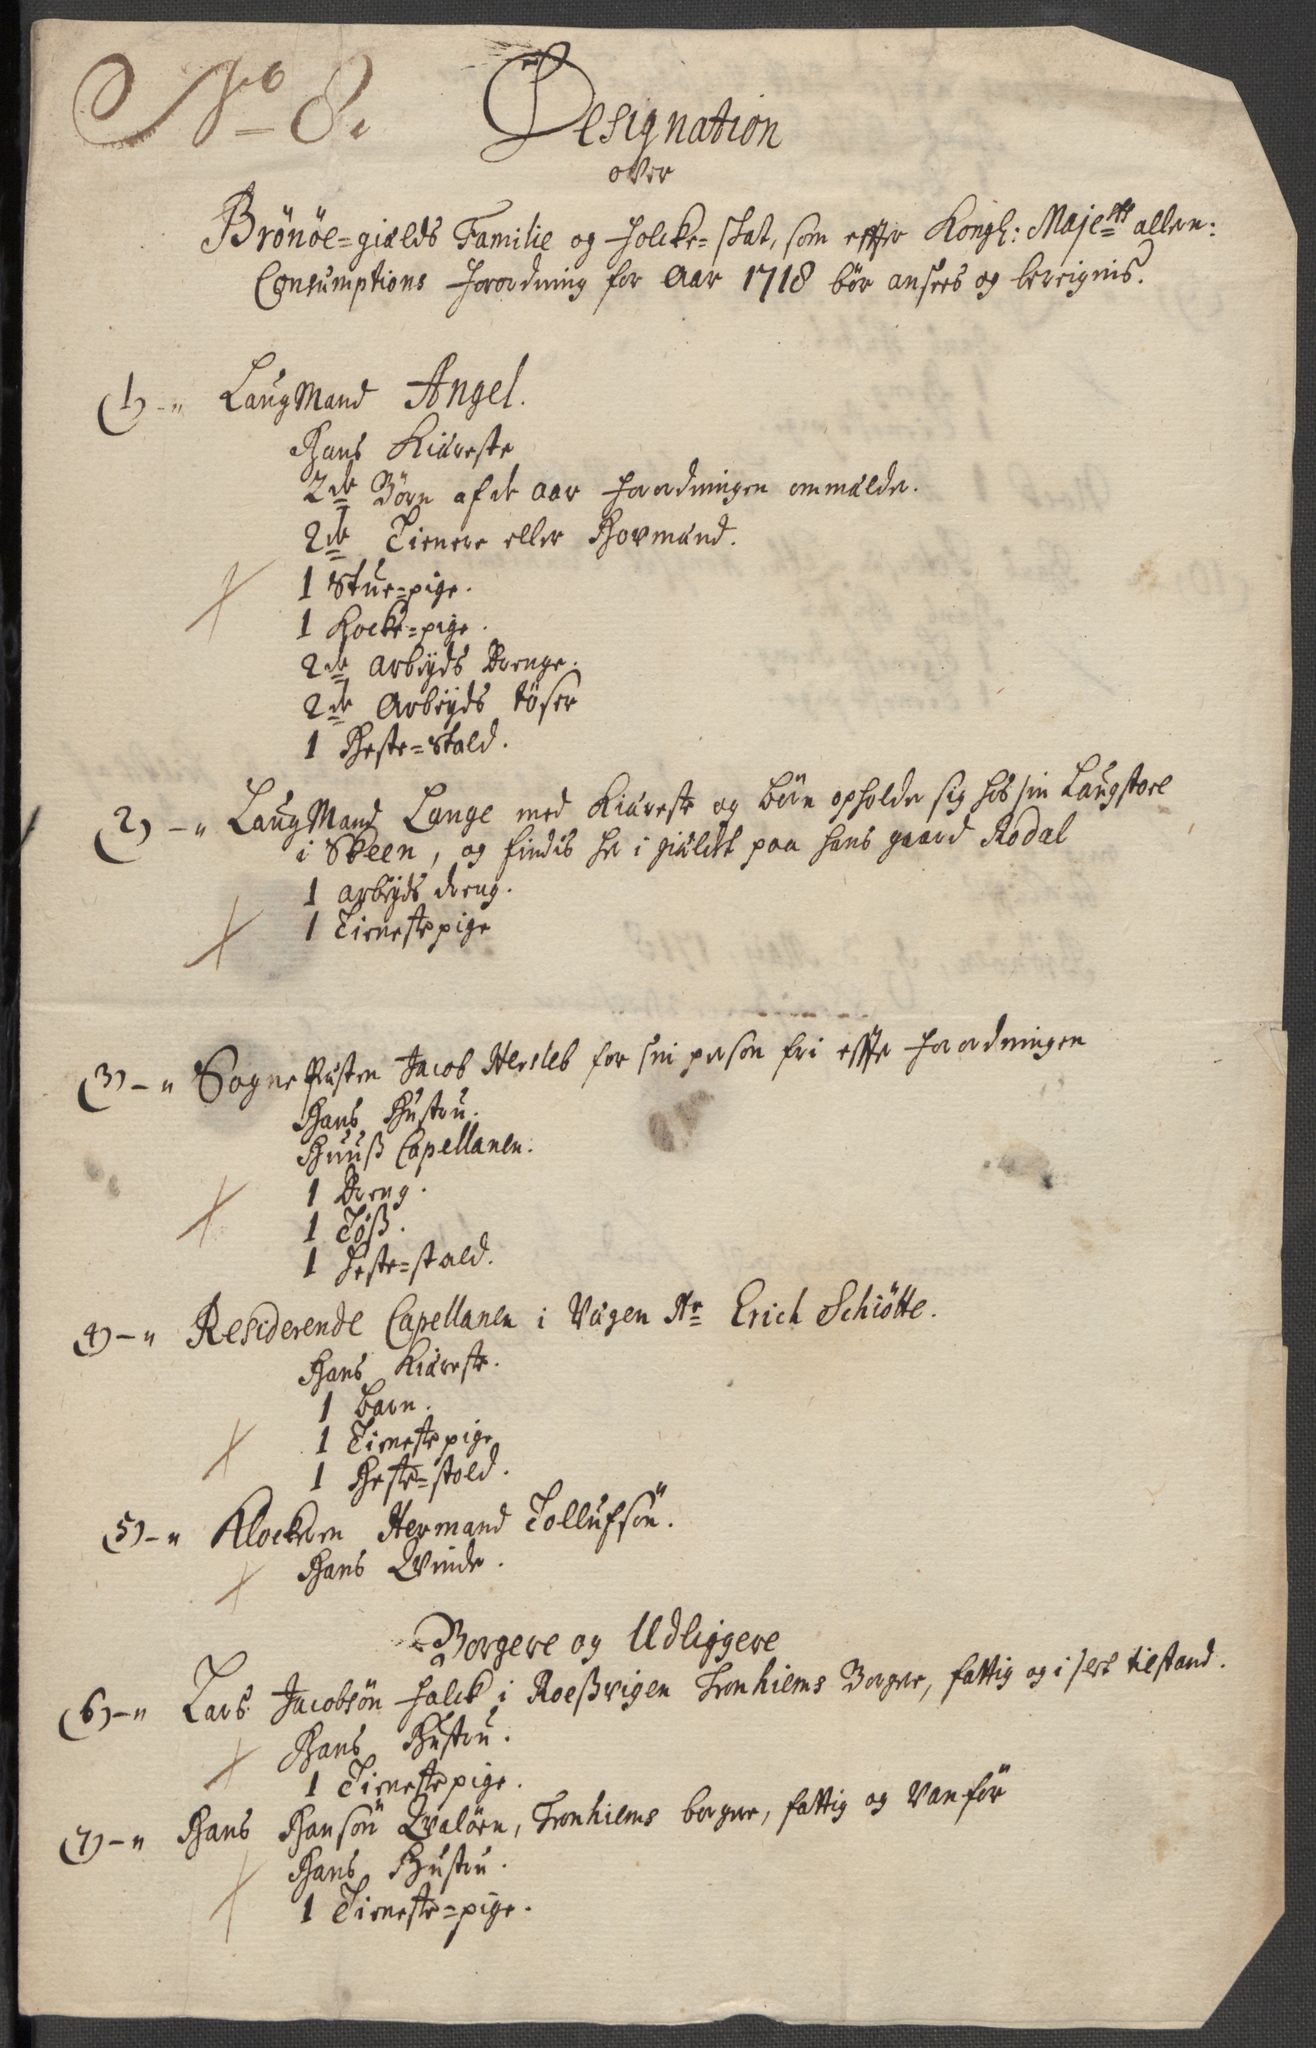 No 8.
Designation
over
Brönöe-gields Familie og Folcke-skat, som effter Kongl: Majests allern:
Consumptions Forordning for Aar 1718 bör ansees og bereignis.
(1) -" LaugMand Angel.
Hans Kiæreste
2de Börn af de aar Forordningen ommælder.
2de Tienere eller Hovmænd.
1 Stue-pige.
1 Kocke-pige.
2de arbeyds Drenge.
2de Arbeyds töser
1 Heste-Stald.
(2) -" LaugMand Lange med Kiæreste og börn opholder sig hos sin Laugstoel
i Skeen, og findis her i gieldet paa hans gaard Rodal
1 arbeyds dreng.
1 Tienestepige
(3) -" Sognepræsten Jacob Hersleb for sin person fri effter Forordningen
Hans Hustru.
Huuß Capellanen.
1 Dreng.
1 Töß.
1 Heste-stald.
(4) -" Residerende Capellanen i Vægen Hr Erich Schiötte.
Hans Kiæreste.
1 barn.
1 Tienestepige
1 Heste-stald.
(5) -" Klockeren Hermand Tollufsön.
Hans Qvinde.
Borgere og Udliggere
(6) -" Lars Jacobsön Falck i Roeßvigen Tronhiems Borger, fattig og i slet tilstand.
Hans Hustru.
1 Tienestepige.
(7) -" Hans Hansön Qvalöen, Tronhiems borger, fattig og Vanför
Hans Hustru.
1 Tieneste-pige.